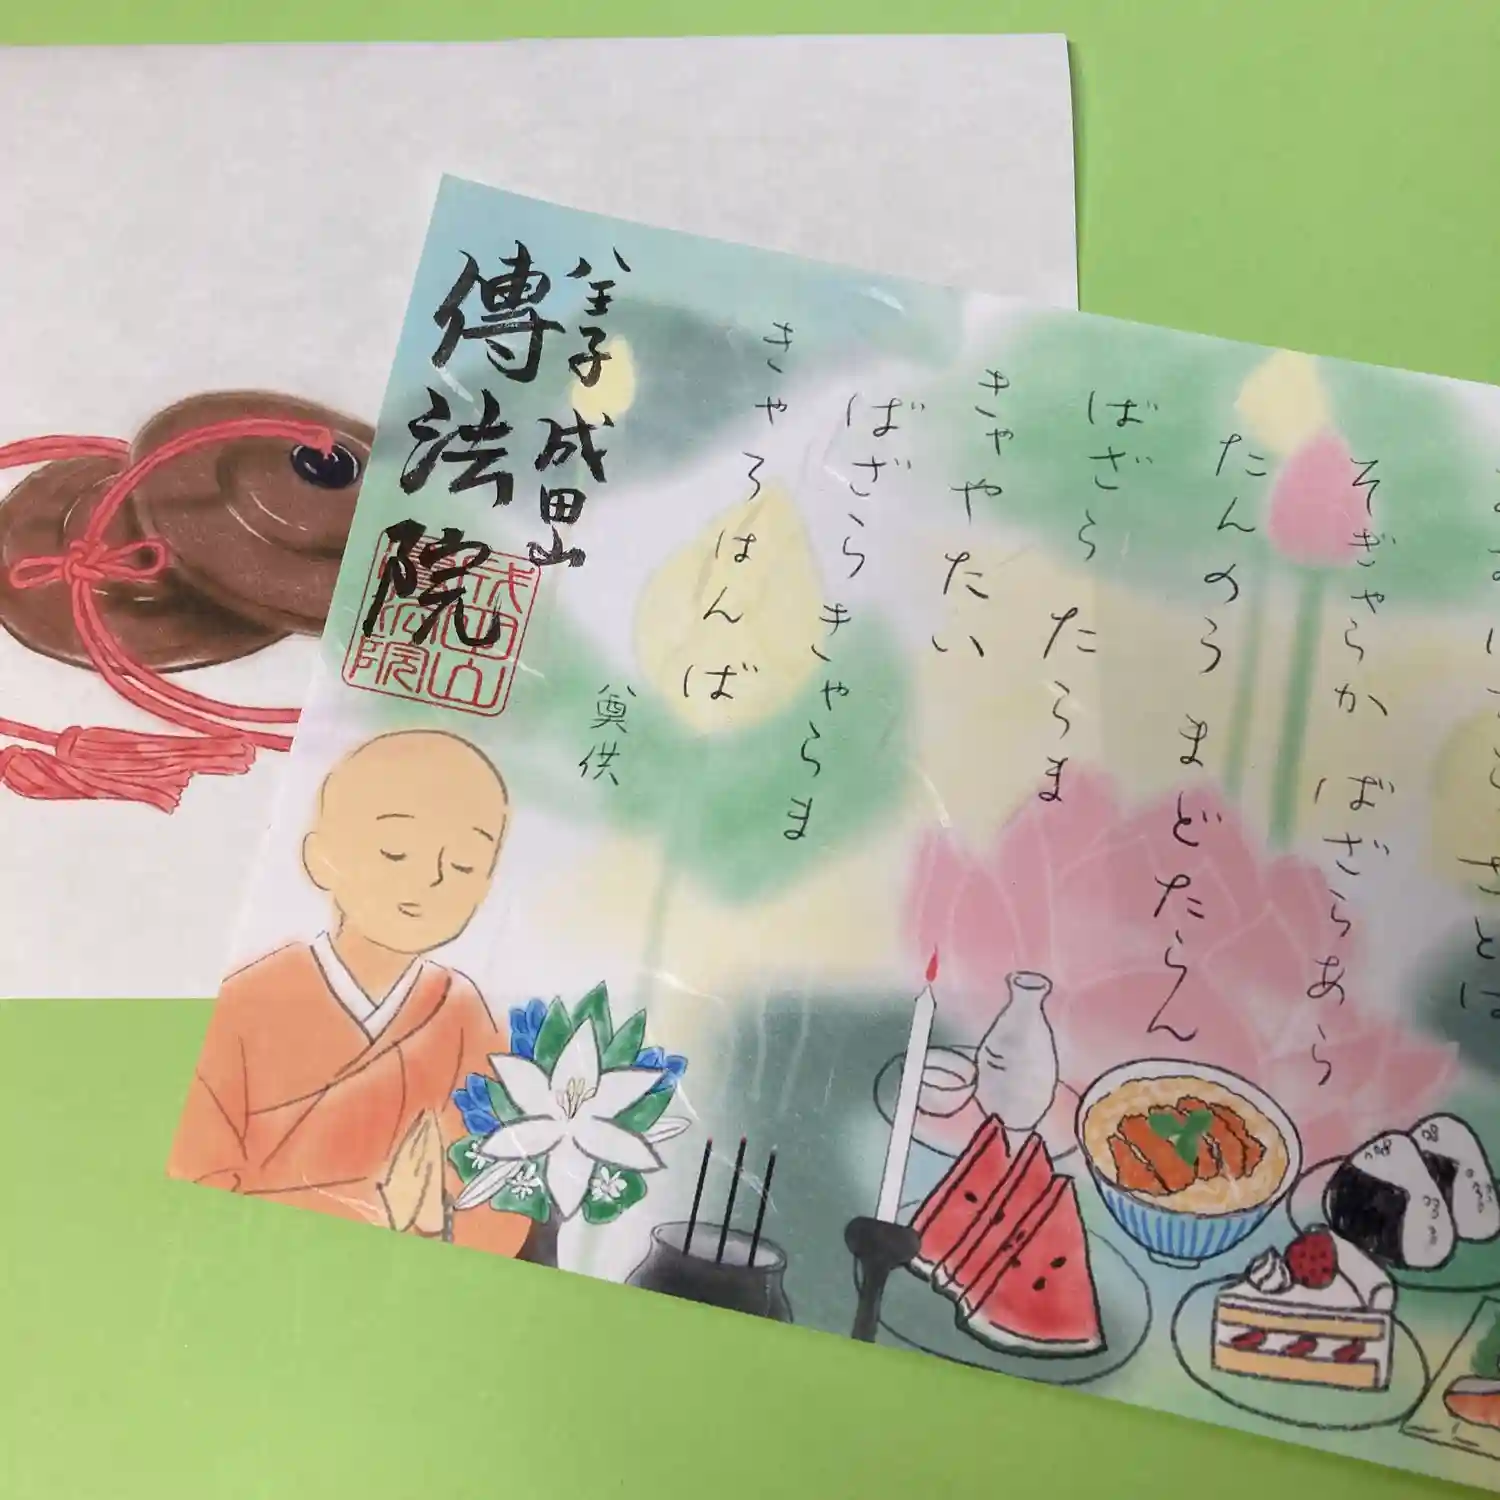 そぎゃらか ばざらあら
たんのう まどたらん
ばざら たらま
きゃやたい
ばざらきゃらま
きゃろはんば
奠供
八王子 成田山
傳法院